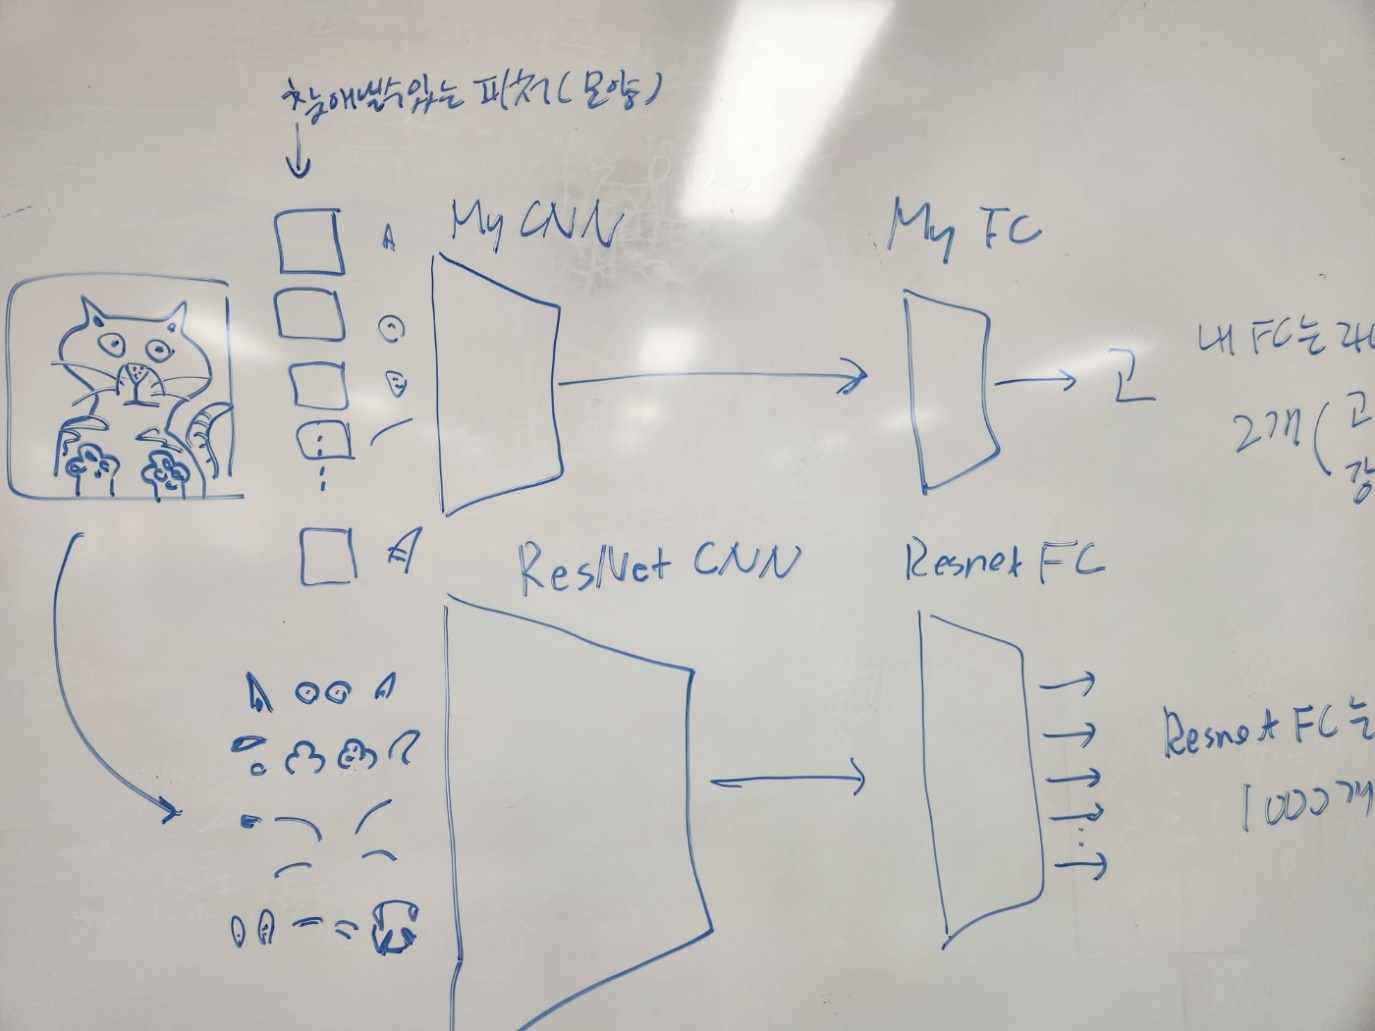 찾아낼수있는 피처(모양)
My CNN
My FC
고
내 FC는
2개(고
ResNet CNN
Resnet FC
Resnet FC는
1000개